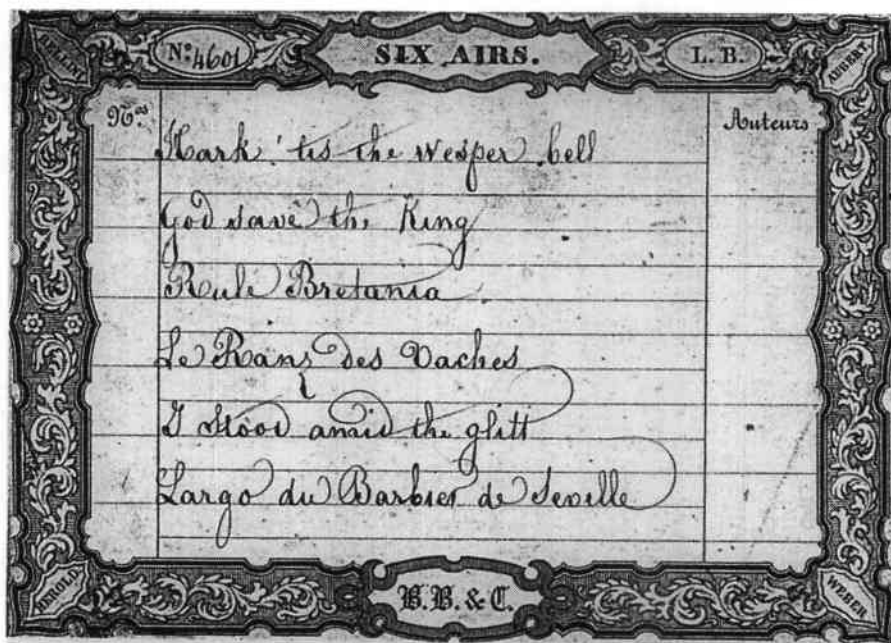 BELLINI
N.o 4601
SIX AIRS.
L. B.
AUBERT.
Nos
Auteurs
Hark 'tis the wesper bell
God save the King
Rule Bretania
Le Ranz des Vaches
I stood amid the glitt
Largo du Barbier de Seville
HEROLD.
B.B. & C.
WEBER